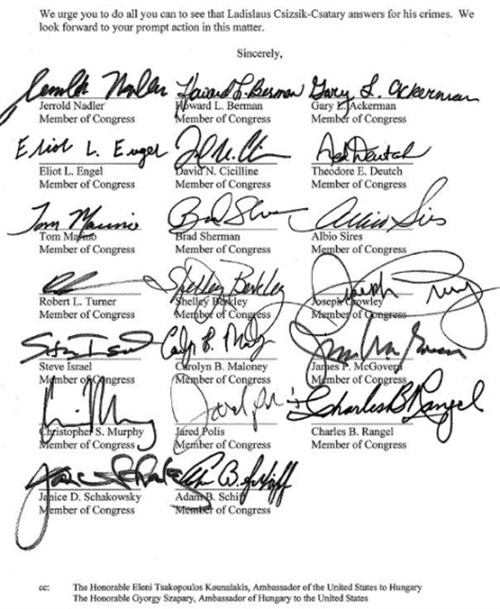 We urge you to do all you can to see that Ladislaus Csizsik-Csatary answers for his crimes. We
look forward to your prompt action in this matter.
Sincerely,
Jerrold Nadler Howard L. Berman Gary L. Ackerman
Jerrold Nadler Howard L. Berman Gary L. Ackerman
Member of Congress Member of Congress Member of Congress
Eliot L. Engel Ted Deutch
Eliot L. Engel David N. Cicilline Theodore E. Deutch
Member of Congress Member of Congress Member of Congress
Tom Marino Brad Sherman Albio Sires
Tom Marino Brad Sherman Albio Sires
Member of Congress Member of Congress Member of Congress
Shelley Berkley Joseph Crowley
Robert L. Turner Shelley Berkley Joseph Crowley
Member of Congress Member of Congress Member of Congress
Steve Israel Carolyn B. Maloney
Steve Israel Carolyn B. Maloney James P. McGovern
Member of Congress Member of Congress Member of Congress
Jared Polis Charles B. Rangel
Christopher S. Murphy Jared Polis Charles B. Rangel
Member of Congress Member of Congress Member of Congress
Adam B. Schiff
Janice D. Schakowsky Adam B. Schiff
Member of Congress Member of Congress
cc: The Honorable Eleni Tsakopoulos Kounalakis, Ambassador of the United States to Hungary
The Honorable Gyorgy Szapary, Ambassador of Hungary to the United States